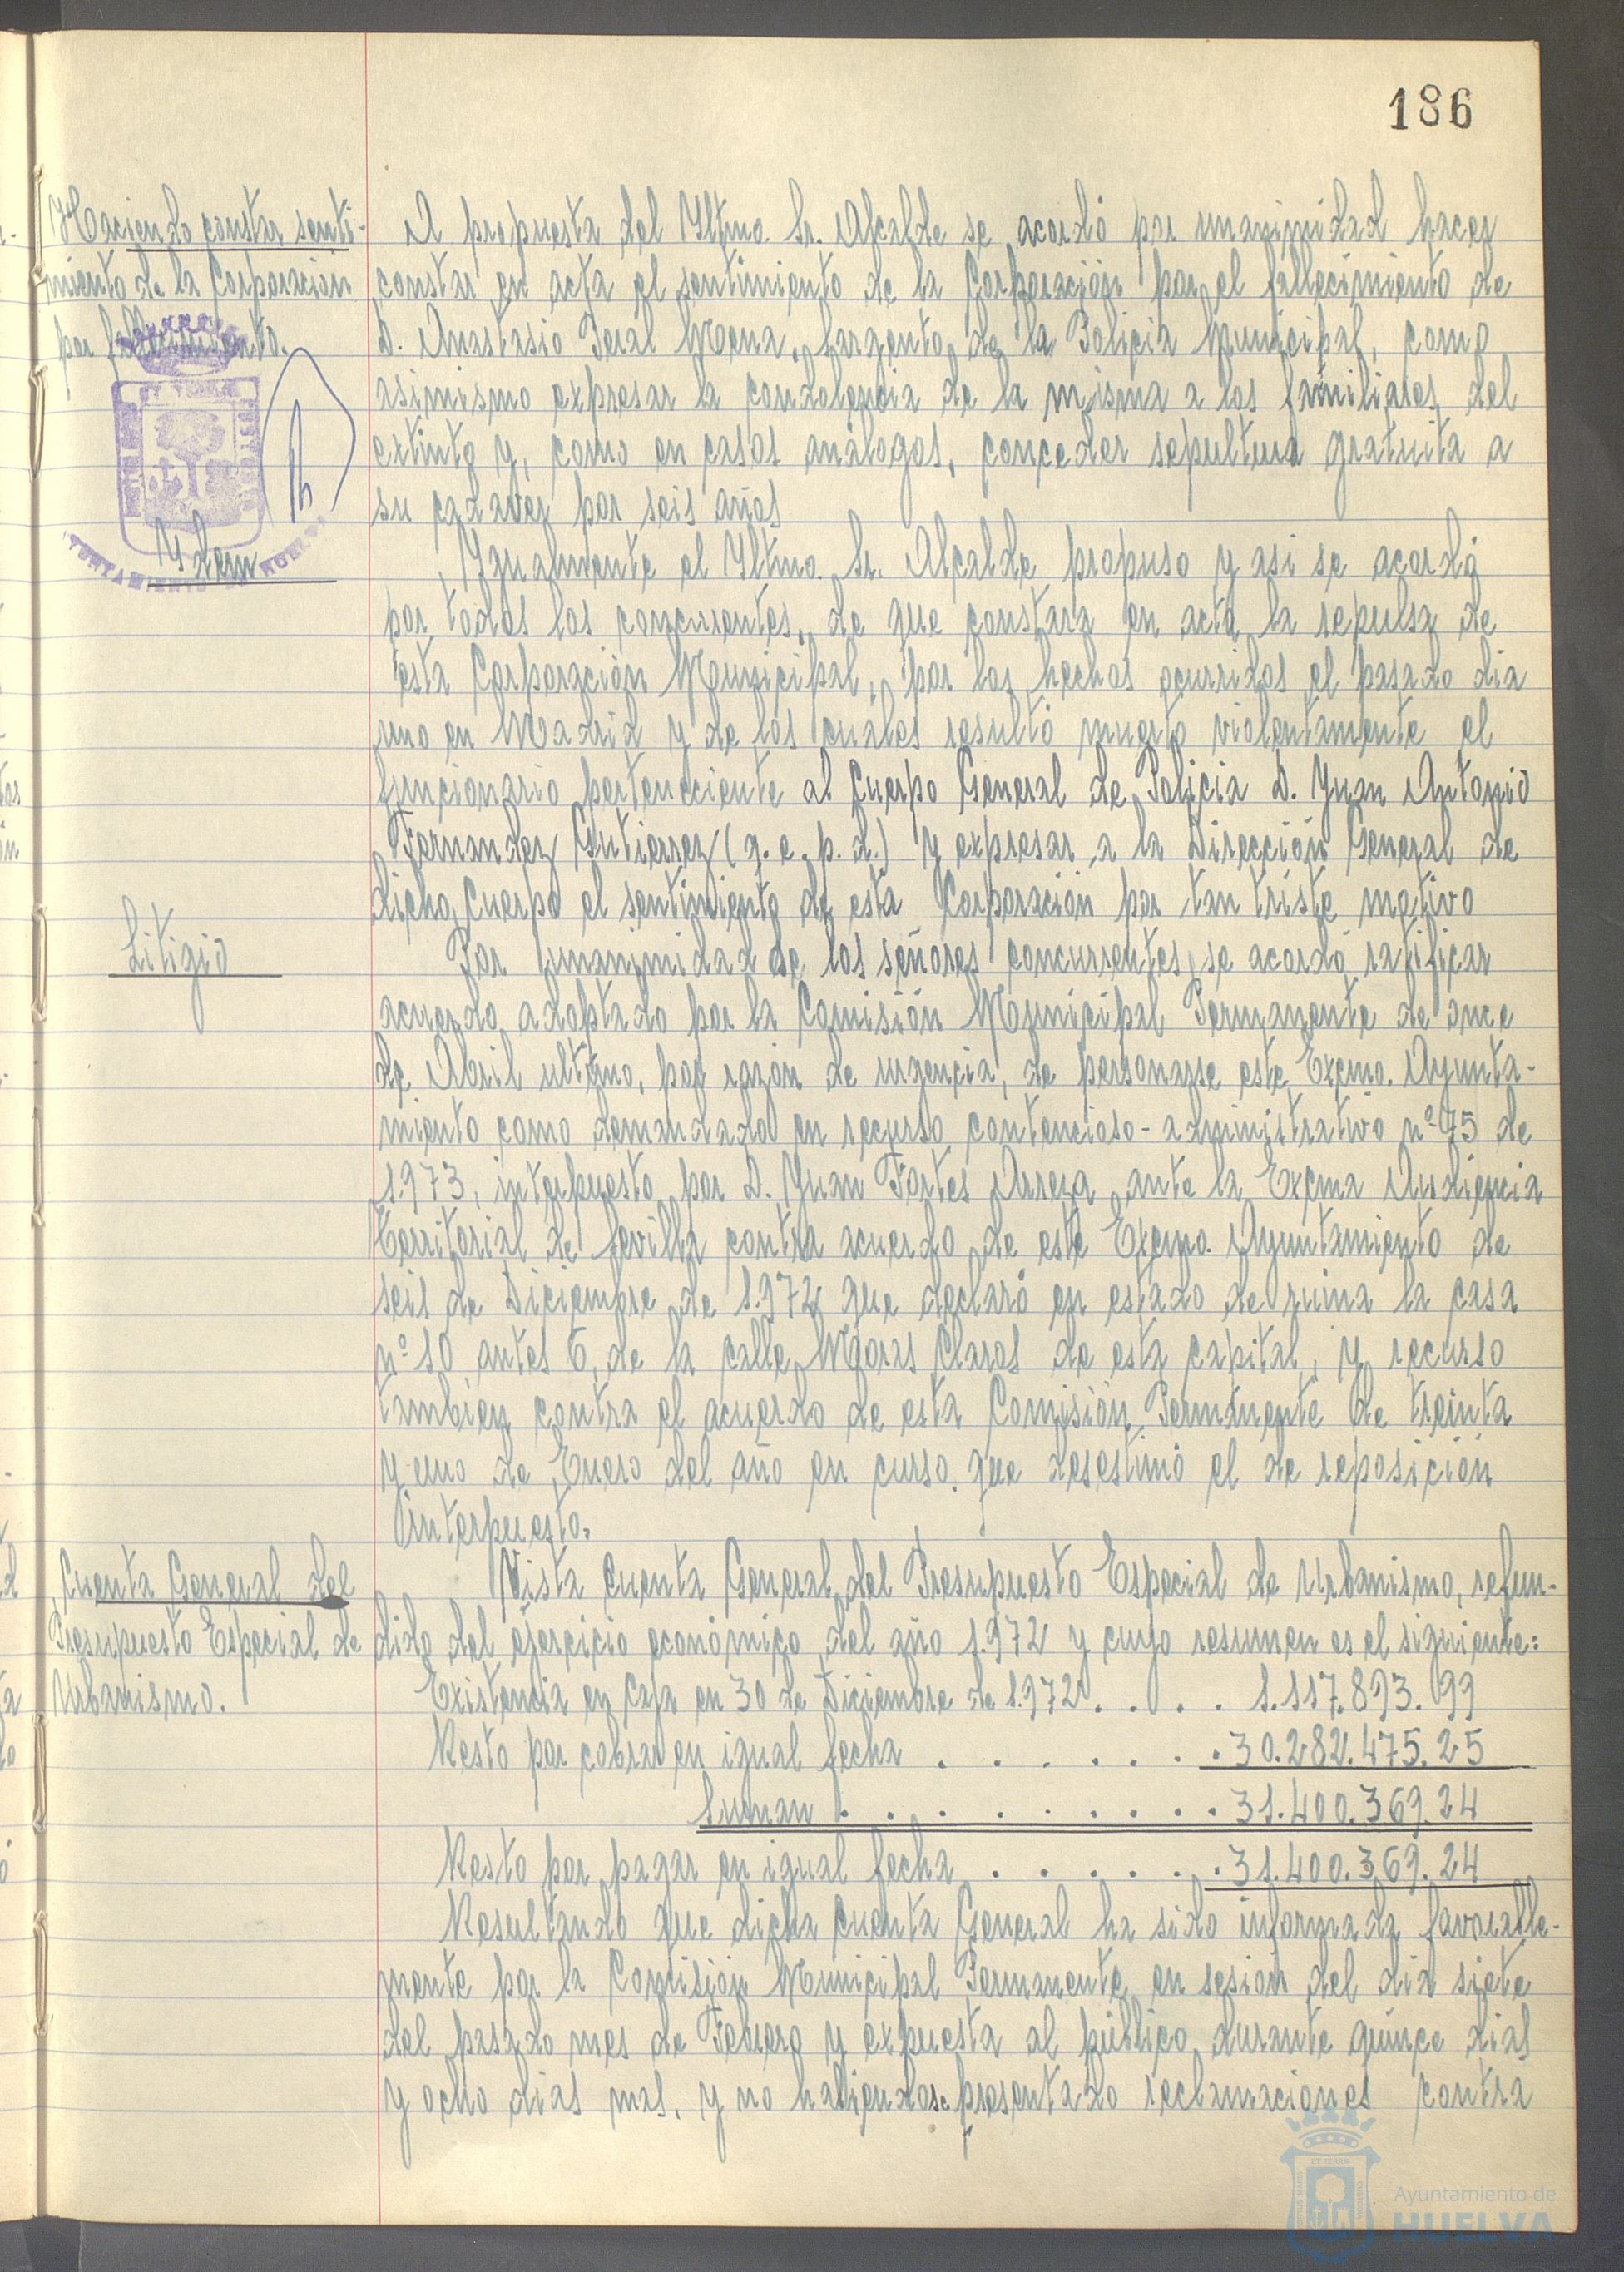 186
Haciendo constar senti-
miento de la Corporación
por fallecimiento.
A propuesta del Iltmo. Sr. Alcalde se acordó por unanimidad hacer
constar en acta el sentimiento de la Corporación por el fallecimiento de
D. Anastasio Peral Mena, Sargento de la Policia Municipal, como
asimismo expresar la condolencia de la misma a los familiares del
extinto y, como en casos análogos, conceder sepultura gratuita a
su cadaver por seis años
Idem
Igualmente el Iltmo. Sr. Alcalde propuso y asi se acordó
por todos los concurentes, de que constara en acta la repulsa de
esta Corporación Municipal, por los hechos ocurridos el pasado dia
uno en Madrid y de los cuáles resultó muerto violentamente el
funcionario perteneciente al Cuerpo General de Policia D. Juan Antonio
Fernandez Gutierrez (q. e. p. d.) y expresar a la Dirección General de
dicho Cuerpo el sentimiento de esta Corporación por tan triste motivo
Litigio
Por unanimidad de los señores concurrentes, se acordó ratificar
acuerdo adoptado por la Comisión Municipal Permanente de once
de Abril ultimo, por razón de urgencia, de personarse este Excmo. Ayunta-
miento como demandado en recurso contencioso-administrativo nº 95 de
1.973, interpuesto por D. Juan Fortes Arreza ante la Excma Audiencia
territorial de Sevilla contra acuerdo de este Excmo. Ayuntamiento de
seis de Diciembre de 1.972 que declaró en estado de ruina la casa
nº 10 antes 6, de la calle Moras Claros de esta capital, y recurso
tambien contra el acuerdo de esta Comisión Permanente de treinta
y uno de Enero del año en curso que desestimó el de reposición
interpuesto.
Cuenta General del
Presupuesto Especial de
Urbanismo.
Vista Cuenta General del Presupuesto Especial de Urbanismo, refun-
dido del ejercicio económico del año 1.972 y cuyo resumen es el siguiente:
Existencia en Caja en 30 de Diciembre de 1.972 . . . . 1.117.893.99
Resto por cobrar en igual fecha . . . . . . 30.282.475.25
Suman . . . . . . . . 31.400.369.24
Resto por pagar en igual fecha . . . . . . 31.400.369.24
Resultando que dicha Cuenta General ha sido informada favorable-
mente por la Comisión Municipal Permanente en sesión del dia siete
del pasado mes de Febrero y expuesta al público durante quince dias
y ocho dias mas, y no habiendose presentado reclamaciones contra
Ayuntamiento de
HUELVA